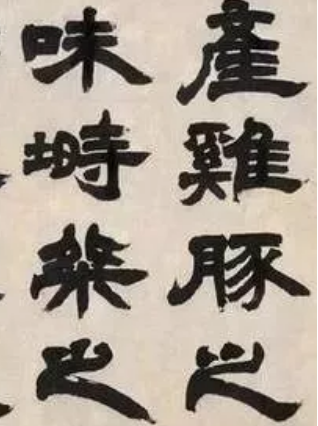 產雞豚之
味塒桀之